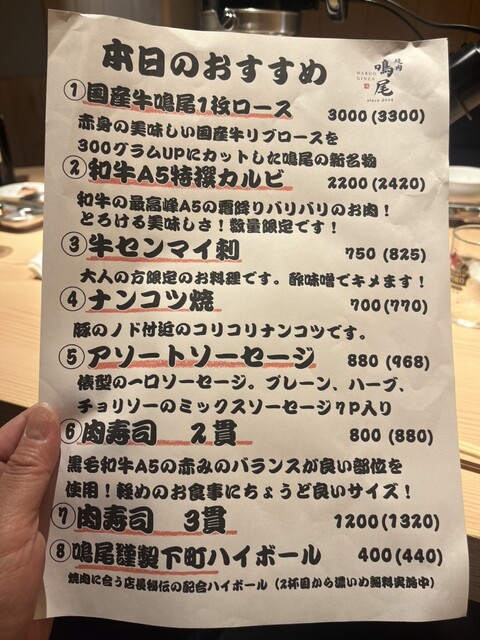 本日のおすすめ
焼肉
鳴尾
NARUO
GINZA
since 2004
①国産牛鳴尾1浜ロース 3000(3300)
赤身の美味しい国産牛リブロースを
300グラムUPにカットした鳴尾の新名物
②和牛A5特撰カルビ 2200(2420)
和牛の最高峰A5の霜降りバリバリのお肉!
とろける美味しさ!数量限定です!
③牛センマイ刺 750(825)
大人の方限定のお料理です。酢味噌でキメます!
④ナンコツ焼 700(770)
豚のノド付近のコリコリナンコツです。
⑤アソートソーセージ 880(968)
俵型の一口ソーセージ。プレーン、ハーブ、
チョリソーのミックスソーセージ7P入り
⑥肉寿司 2貫 800(880)
黒毛和牛A5の赤みのバランスが良い部位を
使用!軽めのお食事にちょうど良いサイズ!
⑦肉寿司 3貫 1200(1320)
⑧鳴尾謹製下町ハイボール 400(440)
焼肉に合う店長秘伝の配合ハイボール(2杯目から濃いめ無料実施中)